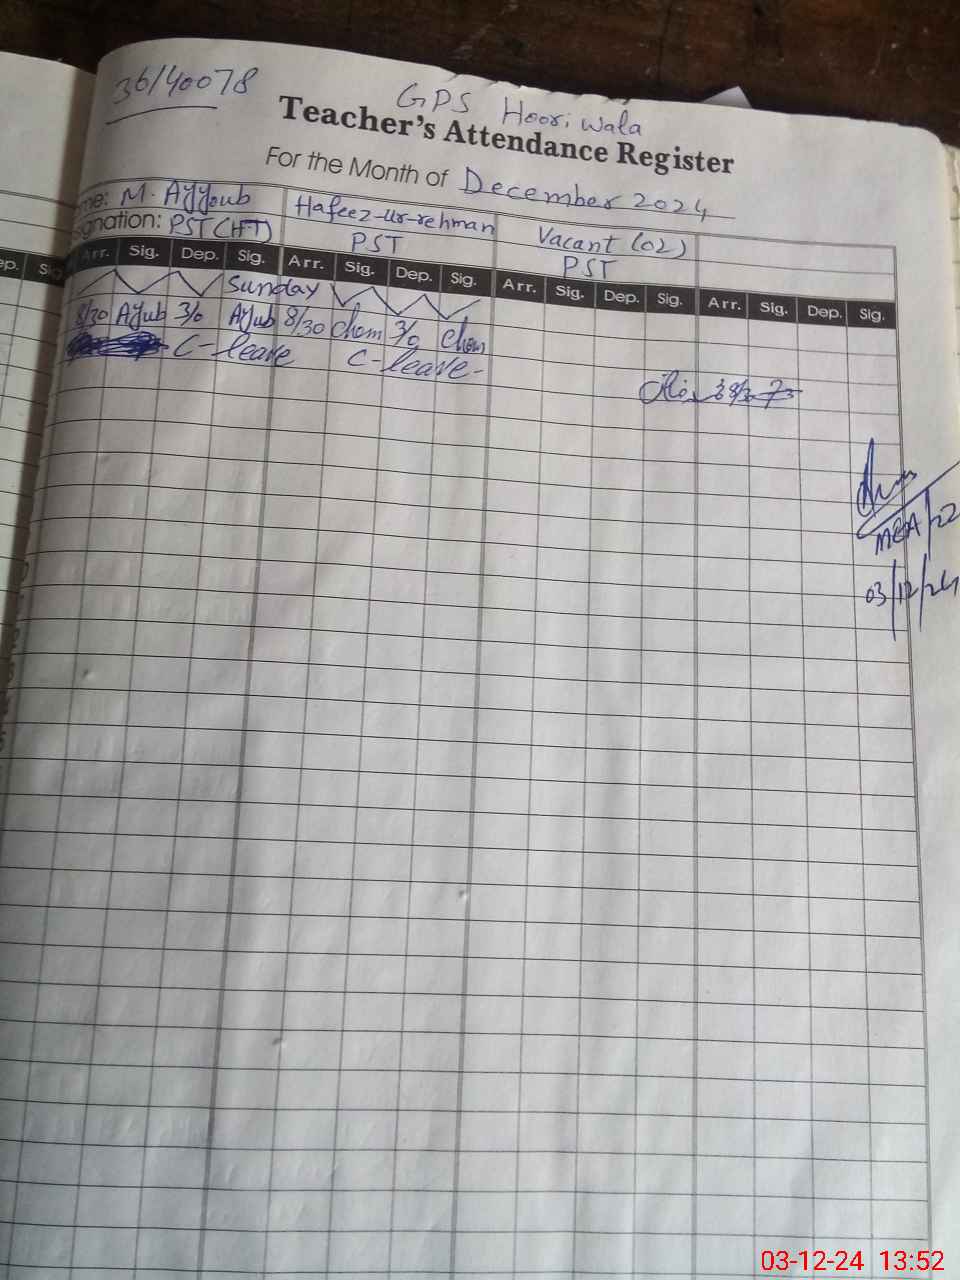 36/40078
GPS Hooriwala
Teacher's Attendance Register
For the Month of December 2024
me: M. Ayyoub Hafeez-ur-rehman Vacant (02)
gnation: PST (HT) PST PST
ep. Arr. Sig. Dep. Sig. Arr. Sig. Dep. Sig. Arr. Sig. Dep. Sig. Arr. Sig. Dep. Sig.
Sunday
8/30 Ayub 3/0 Ayub 8/30 3/0
C-leave C-leave-
MEA/22
03/12/24
03-12-24 13:52